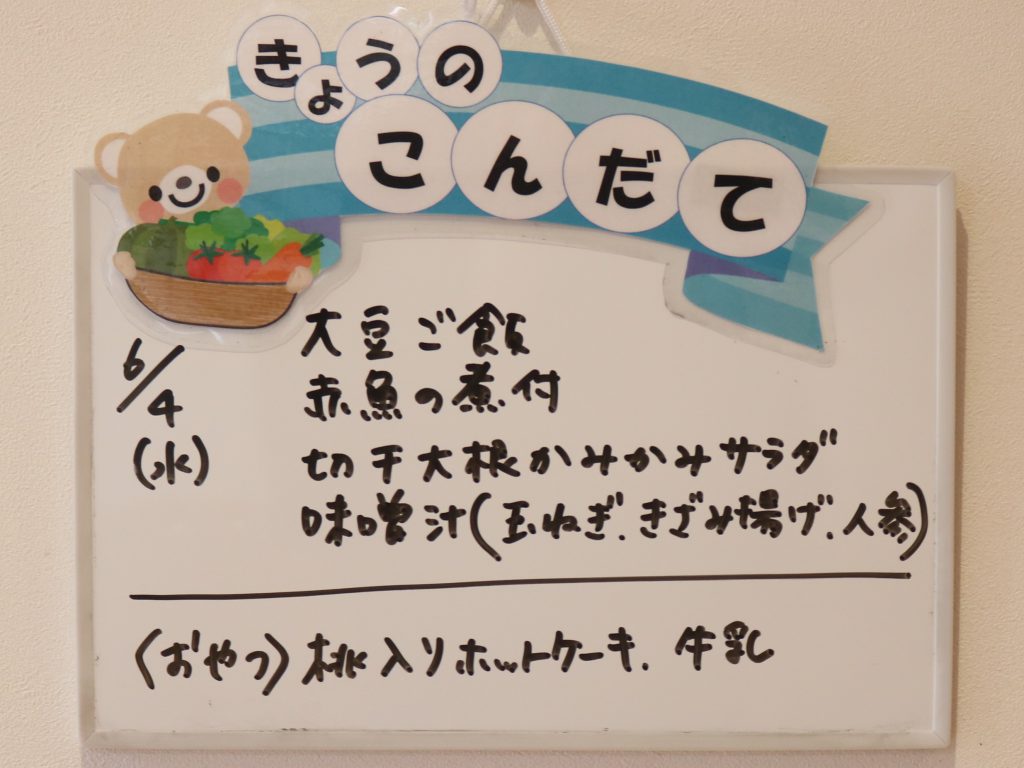 きょうの
こんだて
6/4
(水)
大豆ご飯
赤魚の煮付
切干大根かみかみサラダ
味噌汁(玉ねぎ.きざみ揚げ.人参)
〈おやつ〉桃入りホットケーキ.牛乳